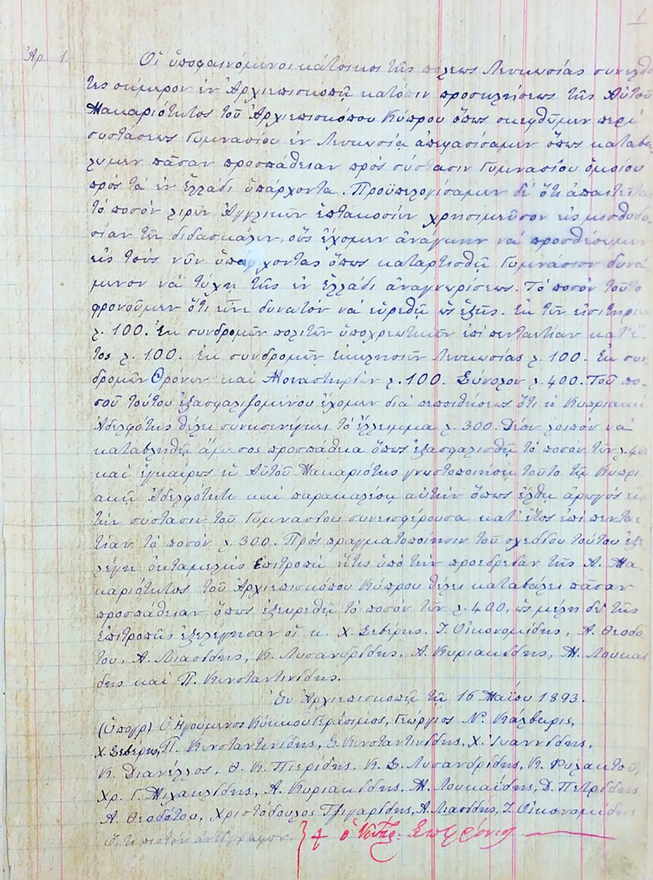 1
Ἀρ. 1. Οἱ ὑποφαινόμενοι κάτοικοι τῆς πόλεως Λευκωσίας συνελθόν
τες σήμερον ἐν Ἀρχιεπισκοπῇ κατόπιν προσκλήσεως τῆς Αὐτοῦ
Μακαριότητος τοῦ Ἀρχιεπισκόπου Κύπρου ὅπως σκεφθῶμεν περὶ
συστάσεως Γυμνασίου ἐν Λευκωσίᾳ ἀπεφασίσαμεν ὅπως καταβά
λωμεν πᾶσαν προσπάθειαν πρὸς σύστασιν Γυμνασίου ὁμοίου
πρὸς τὰ ἐν Ἑλλάδι ὑπάρχοντα. Προϋπελογίσαμεν δὲ ὅτι ἀπαιτεῖται
τὸ ποσὸν λιρῶν Ἀγγλικῶν ἑπτακοσίων χρησιμεῦσον εἰς μισθοδο
σίαν τῶν διδασκάλων, οὓς ἔχομεν ἀνάγκην νὰ προσθέσωμεν
εἰς τοὺς νῦν ὑπάρχοντας ὅπως καταρτισθῇ Γυμνάσιον δυνά
μενον νὰ τύχῃ τῆς ἐν Ἑλλάδι ἀναγνωρίσεως. Τὸ ποσὸν τοῦτο
φρονοῦμεν ὅτι εἶνε δυνατὸν νὰ εὑρεθῇ ὡς ἑξῆς. Ἐκ τῶν εἰσιτηρίων
λ. 100. Ἐκ συνδρομῶν πολιτῶν ὑποχρεωτικῶν ἐπὶ πενταετίαν κατ' ἔ
τος λ. 100. Ἐκ συνδρομῶν ἐκκλησιῶν Λευκωσίας λ. 100. Ἐκ συν
δρομῶν Θρόνων καὶ Μοναστηρίων λ. 100. Σύνολον λ. 400. Τοῦ πο
σοῦ τούτου ἐξασφαλιζομένου ἔχομεν διὰ πεποιθήσεως ὅτι ἡ Κυπριακὴ
Ἀδελφότης θέλει συνεισενέγκει τὸ ἔλλειμμα λ. 300. Δέον λοιπὸν νὰ
καταβληθῇ ἄμεσος προσπάθεια ὅπως ἐξασφαλισθῇ τὸ ποσὸν τῶν λ. 400
καὶ ἐγκαίρως ἡ Αὐτοῦ Μακαριότης γνωστοποιήσῃ τοῦτο τῇ Κυπρι
ακῇ Ἀδελφότητι καὶ παρακαλέσῃ αὐτὴν ὅπως ἔλθῃ ἀρωγὸς εἰς
τὴν σύστασιν τοῦ Γυμνασίου συνεισφέρουσα κατ' ἔτος ἐπὶ πενταε
τίαν τὸ ποσὸν λ. 300. Πρὸς πραγματοποίησιν τοῦ σχεδίου τούτου ἐξε
λέγη ὀκταμελὴς Ἐπιτροπὴ ἥτις ὑπὸ τὴν προεδρείαν τῆς Α. Μα
καριότητος τοῦ Ἀρχιεπισκόπου Κύπρου θέλει καταβάλει πᾶσαν
προσπάθειαν ὅπως ἐξευρεθῇ τὸ ποσὸν τῶν λ. 400, ὡς μέλη δὲ τῆς
ἐπιτροπῆς ἐξελέγησαν οἱ κ. Χ. Σεβέρης, Ἰ. Οἰκονομίδης, Α. Θεοδό
του, Α. Λιασίδης, Κ. Λυσανδρίδης, Α. Κυριακίδης, Μ. Λουκαΐ
δης καὶ Π. Κωνσταντινίδης.
Ἐν Ἀρχιεπισκοπῇ τῇ 16 Μαΐου 1893.
(Ὑπογρ) Ὁ Ἡγούμενος Κύκκου Γεράσιμος, Γεώργιος Ν.
Χ. Σεβέρης, Π. Κωνσταντινίδης, Σ. Κωνσταντινίδης, Χ. Ἰωαννίδης,
Κ. Διανέλλος, Θ. Κ. Πιερίδης, Κ. Σ. Λυσανδρίδης, Κ. Φυλακτοῦ,
Χρ. Γ. Μιχαηλίδης, Α. Κυριακίδης, Μ. Λουκαΐδης, Δ. Πετρίδης
Α. Θεοδότου, Χριστόδουλος Τζιγαρίδης, Α. Λιασίδης, Ἰ. Οἰκονομίδης
Ὅτι πιστὸν ἀντίγραφον. † ὁ Κύπρ. Σωφρόνιος